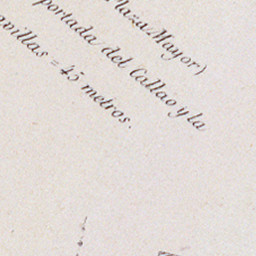 Plaza Mayor)
portada del Callao y la
villas = 45 metros.